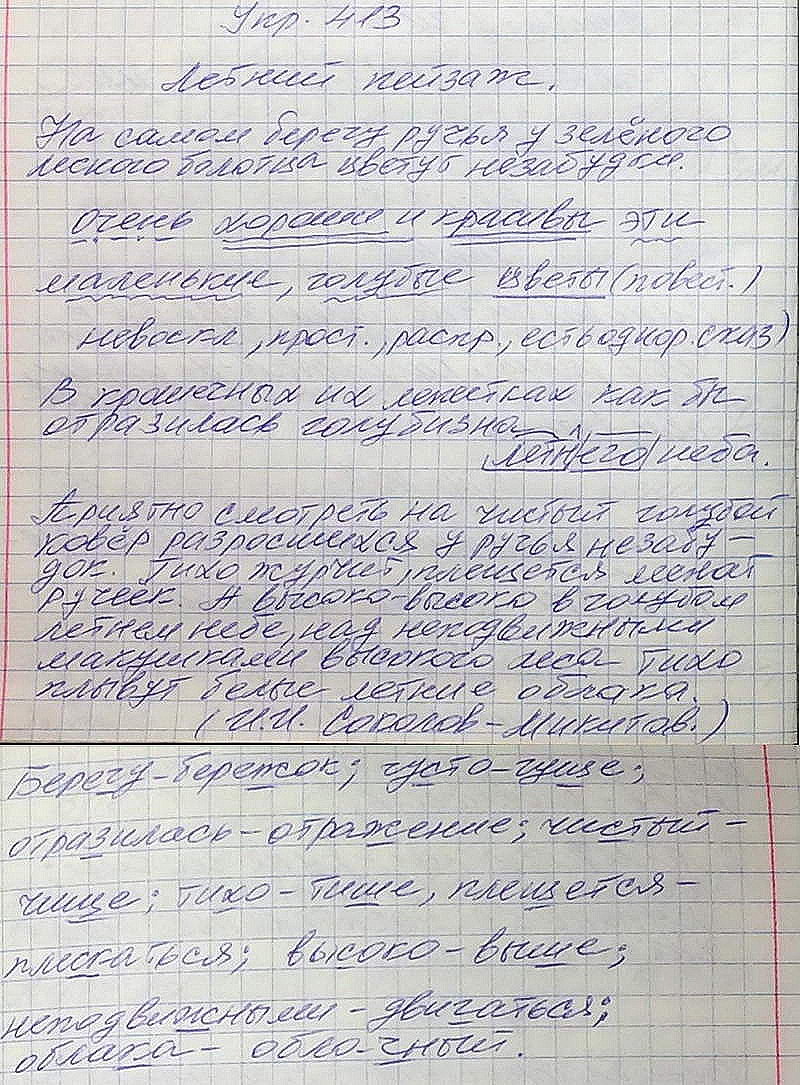 Упр. 413
Летний пейзаж.
На самом берегу ручья у зелёного
лесного болотца цветут незабудки.
Очень хороши и красивы эти
маленькие, голубые цветы (повест.)
невоскл., прост., распр., есть однор. сказ)
В крошечных их лепестках как бы
отразилась голубизна
летнего неба.
Приятно смотреть на чистый голубой
ковёр разросшихся у ручья незабу-
док. Тихо журчит, плещется лесной
ручеек. А высоко-высоко в голубом
летнем небе, над неподвижными
макушками высокого леса тихо
плывут белые летние облака.
(И.И. Соколов-Микитов.)
Берегу-бережок; густо-гуще;
отразилась-отражение; чистый-
чище; тихо-тише, плещется-
плескаться; высоко-выше;
неподвижными-двигаться;
облака-облачный.